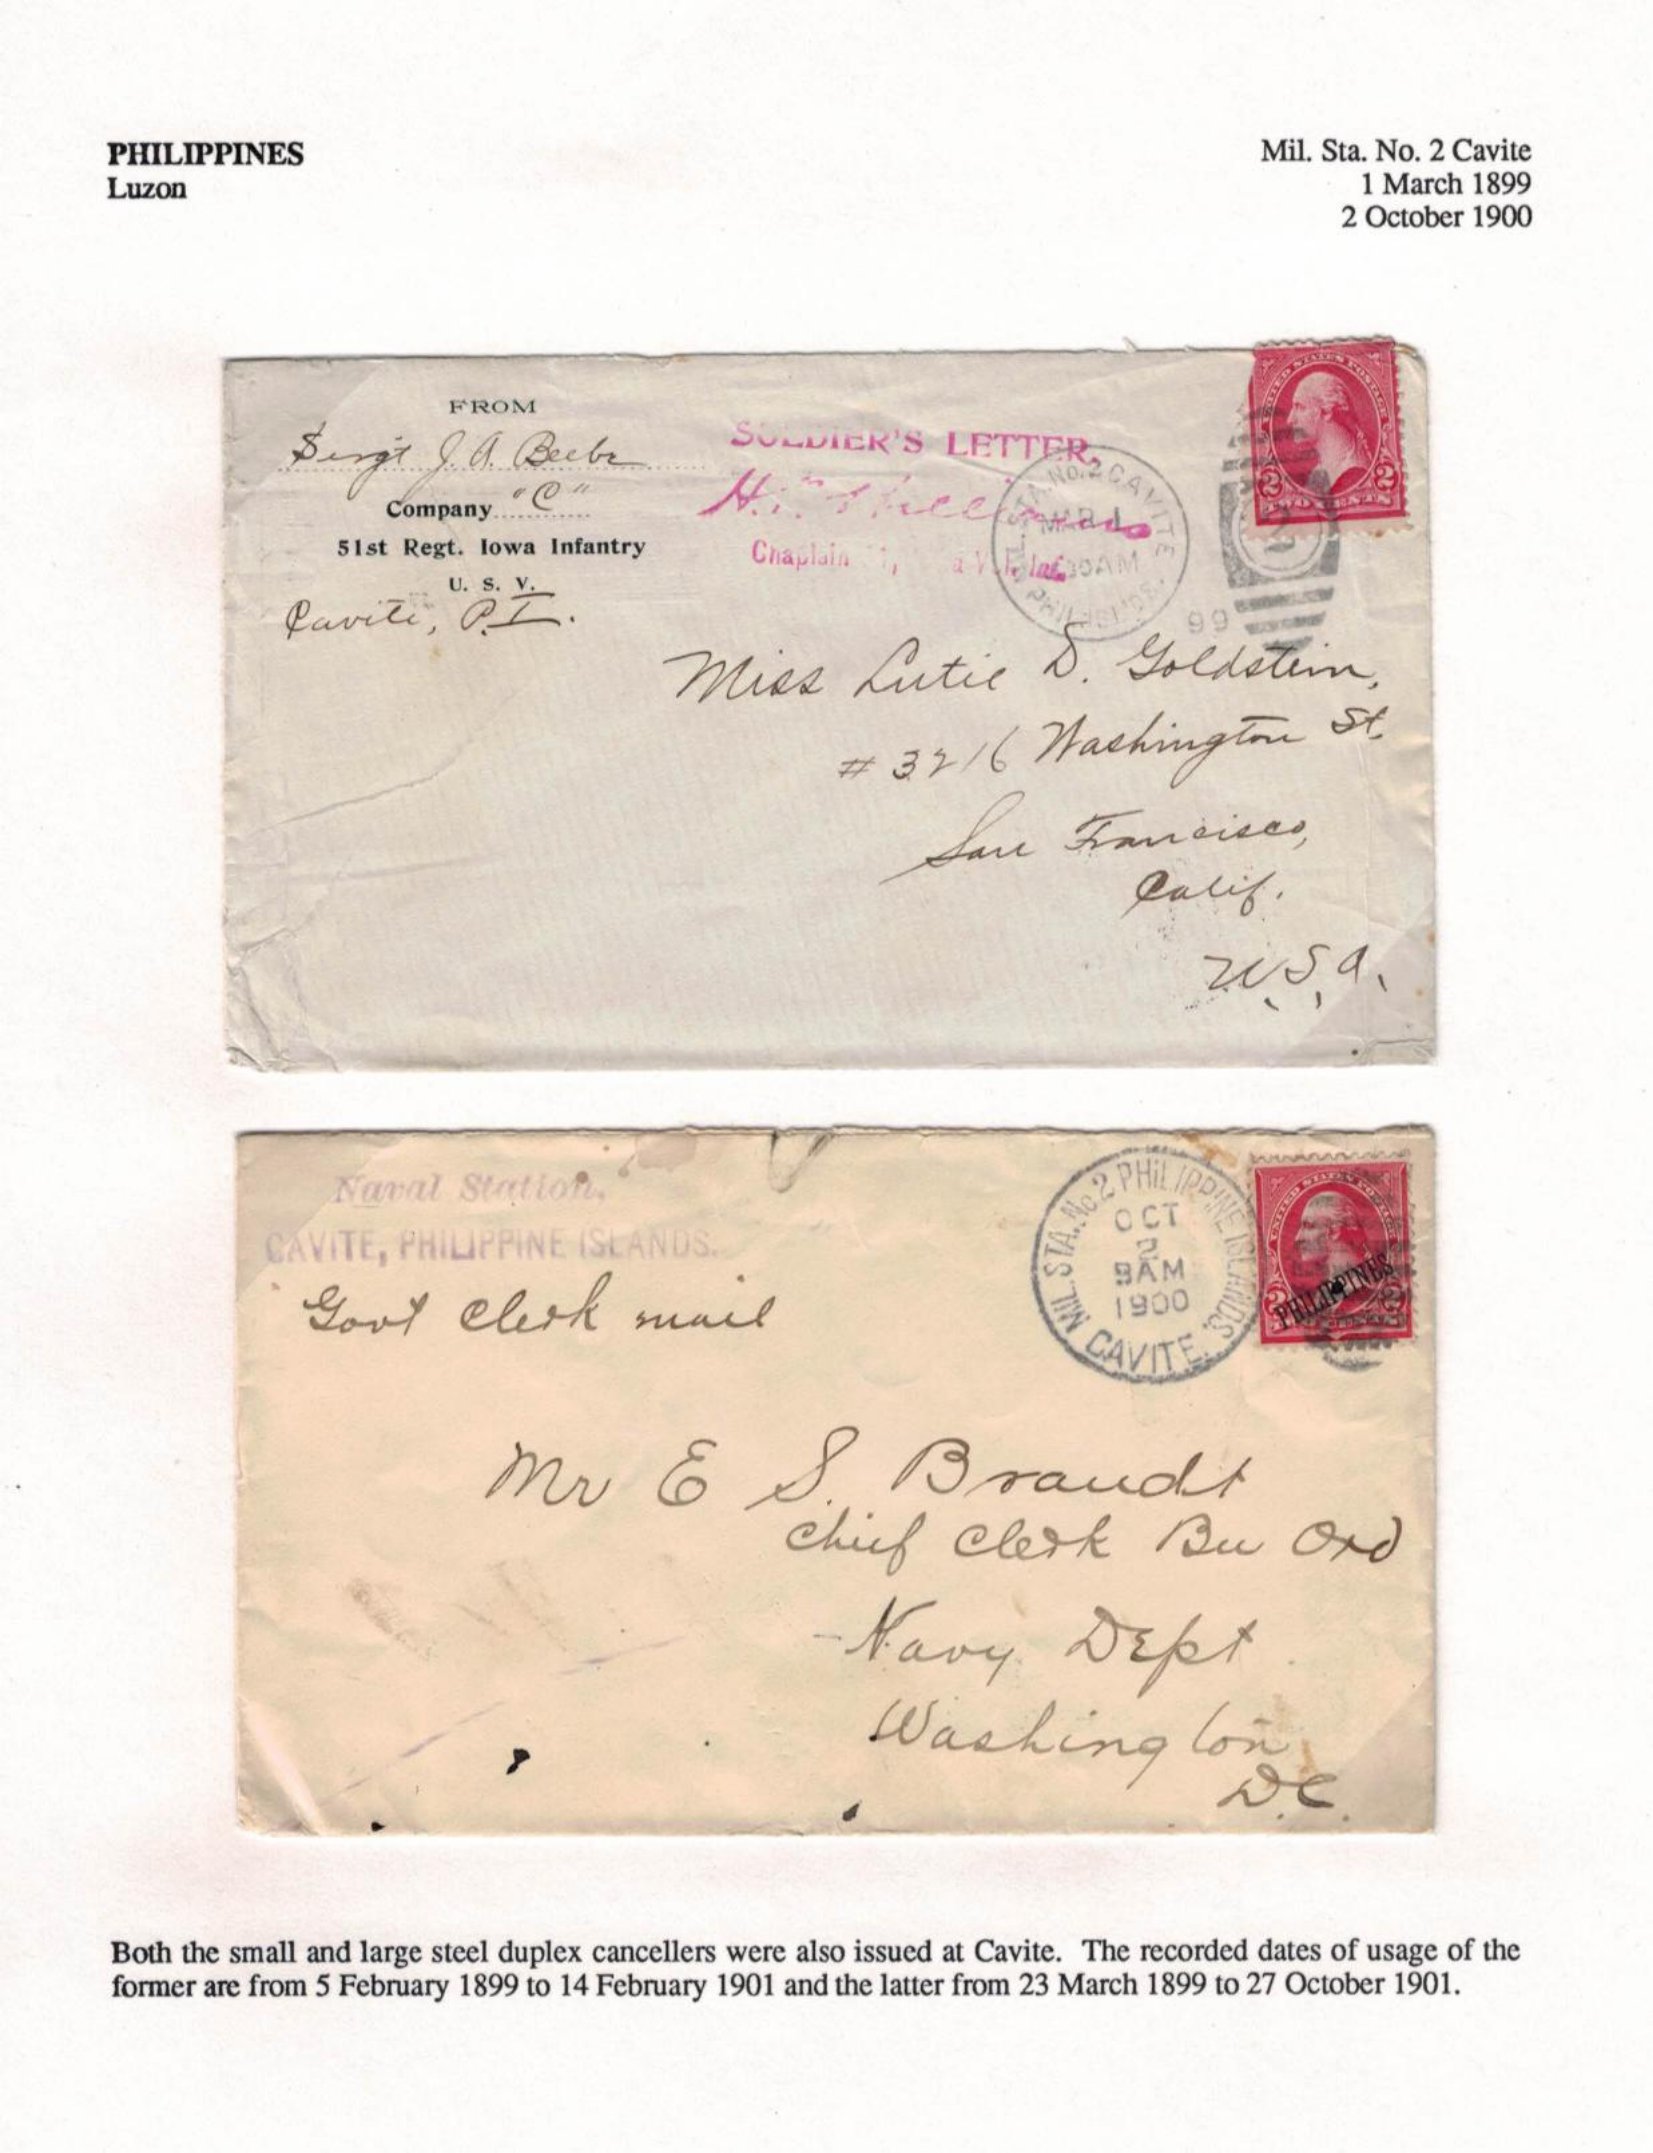 PHILIPPINES
Luzon
Mil. Sta. No. 2 Cavite
1 March 1899
2 October 1900
FROM
Sergt J. A. Beebe
Company "C"
51st Regt. Iowa Infantry
U. S. V.
Cavite, P.I.
SOLDIER'S LETTER,
Chaplain
STA. No. 2 CAVITE
MAR 1
30AM
99
UNITED STATES POSTAGE
2 2
TWO CENTS
Miss Lutie D. Goldstein,
# 3216 Washington St.
San Francisco,
Calif.
U.S.A.
Naval Station,
CAVITE, PHILIPPINE ISLANDS.
Govt Clerk mail
MIL. STA. No 2 PHILIPPINE ISLANDS.
OCT
2
9AM
1900
CAVITE.
PHILIPPINES
Mr E S. Brandt
Chief Clerk Bu Ord
Navy Dept
Washington
D.C.
Both the small and large steel duplex cancellers were also issued at Cavite. The recorded dates of usage of the
former are from 5 February 1899 to 14 February 1901 and the latter from 23 March 1899 to 27 October 1901.